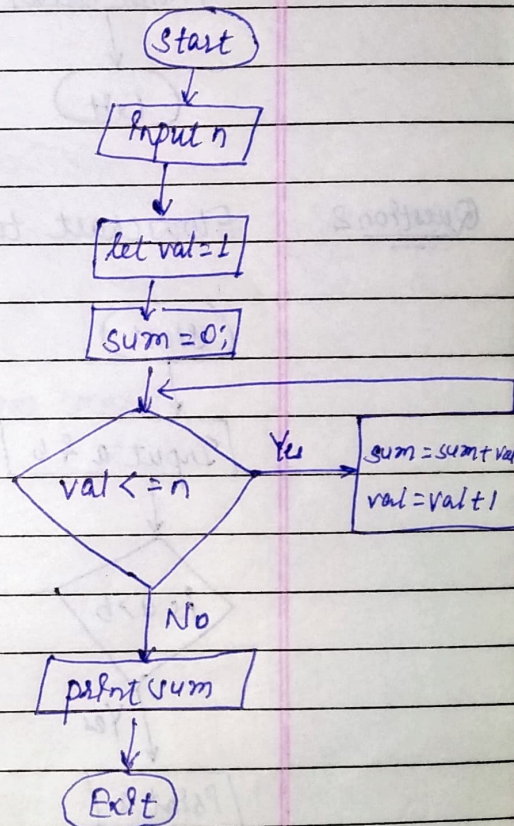 Start
Input n
let val=1
sum=0;
val<=n
Yes
sum=sum+val
val=val+1
No
print sum
Exit